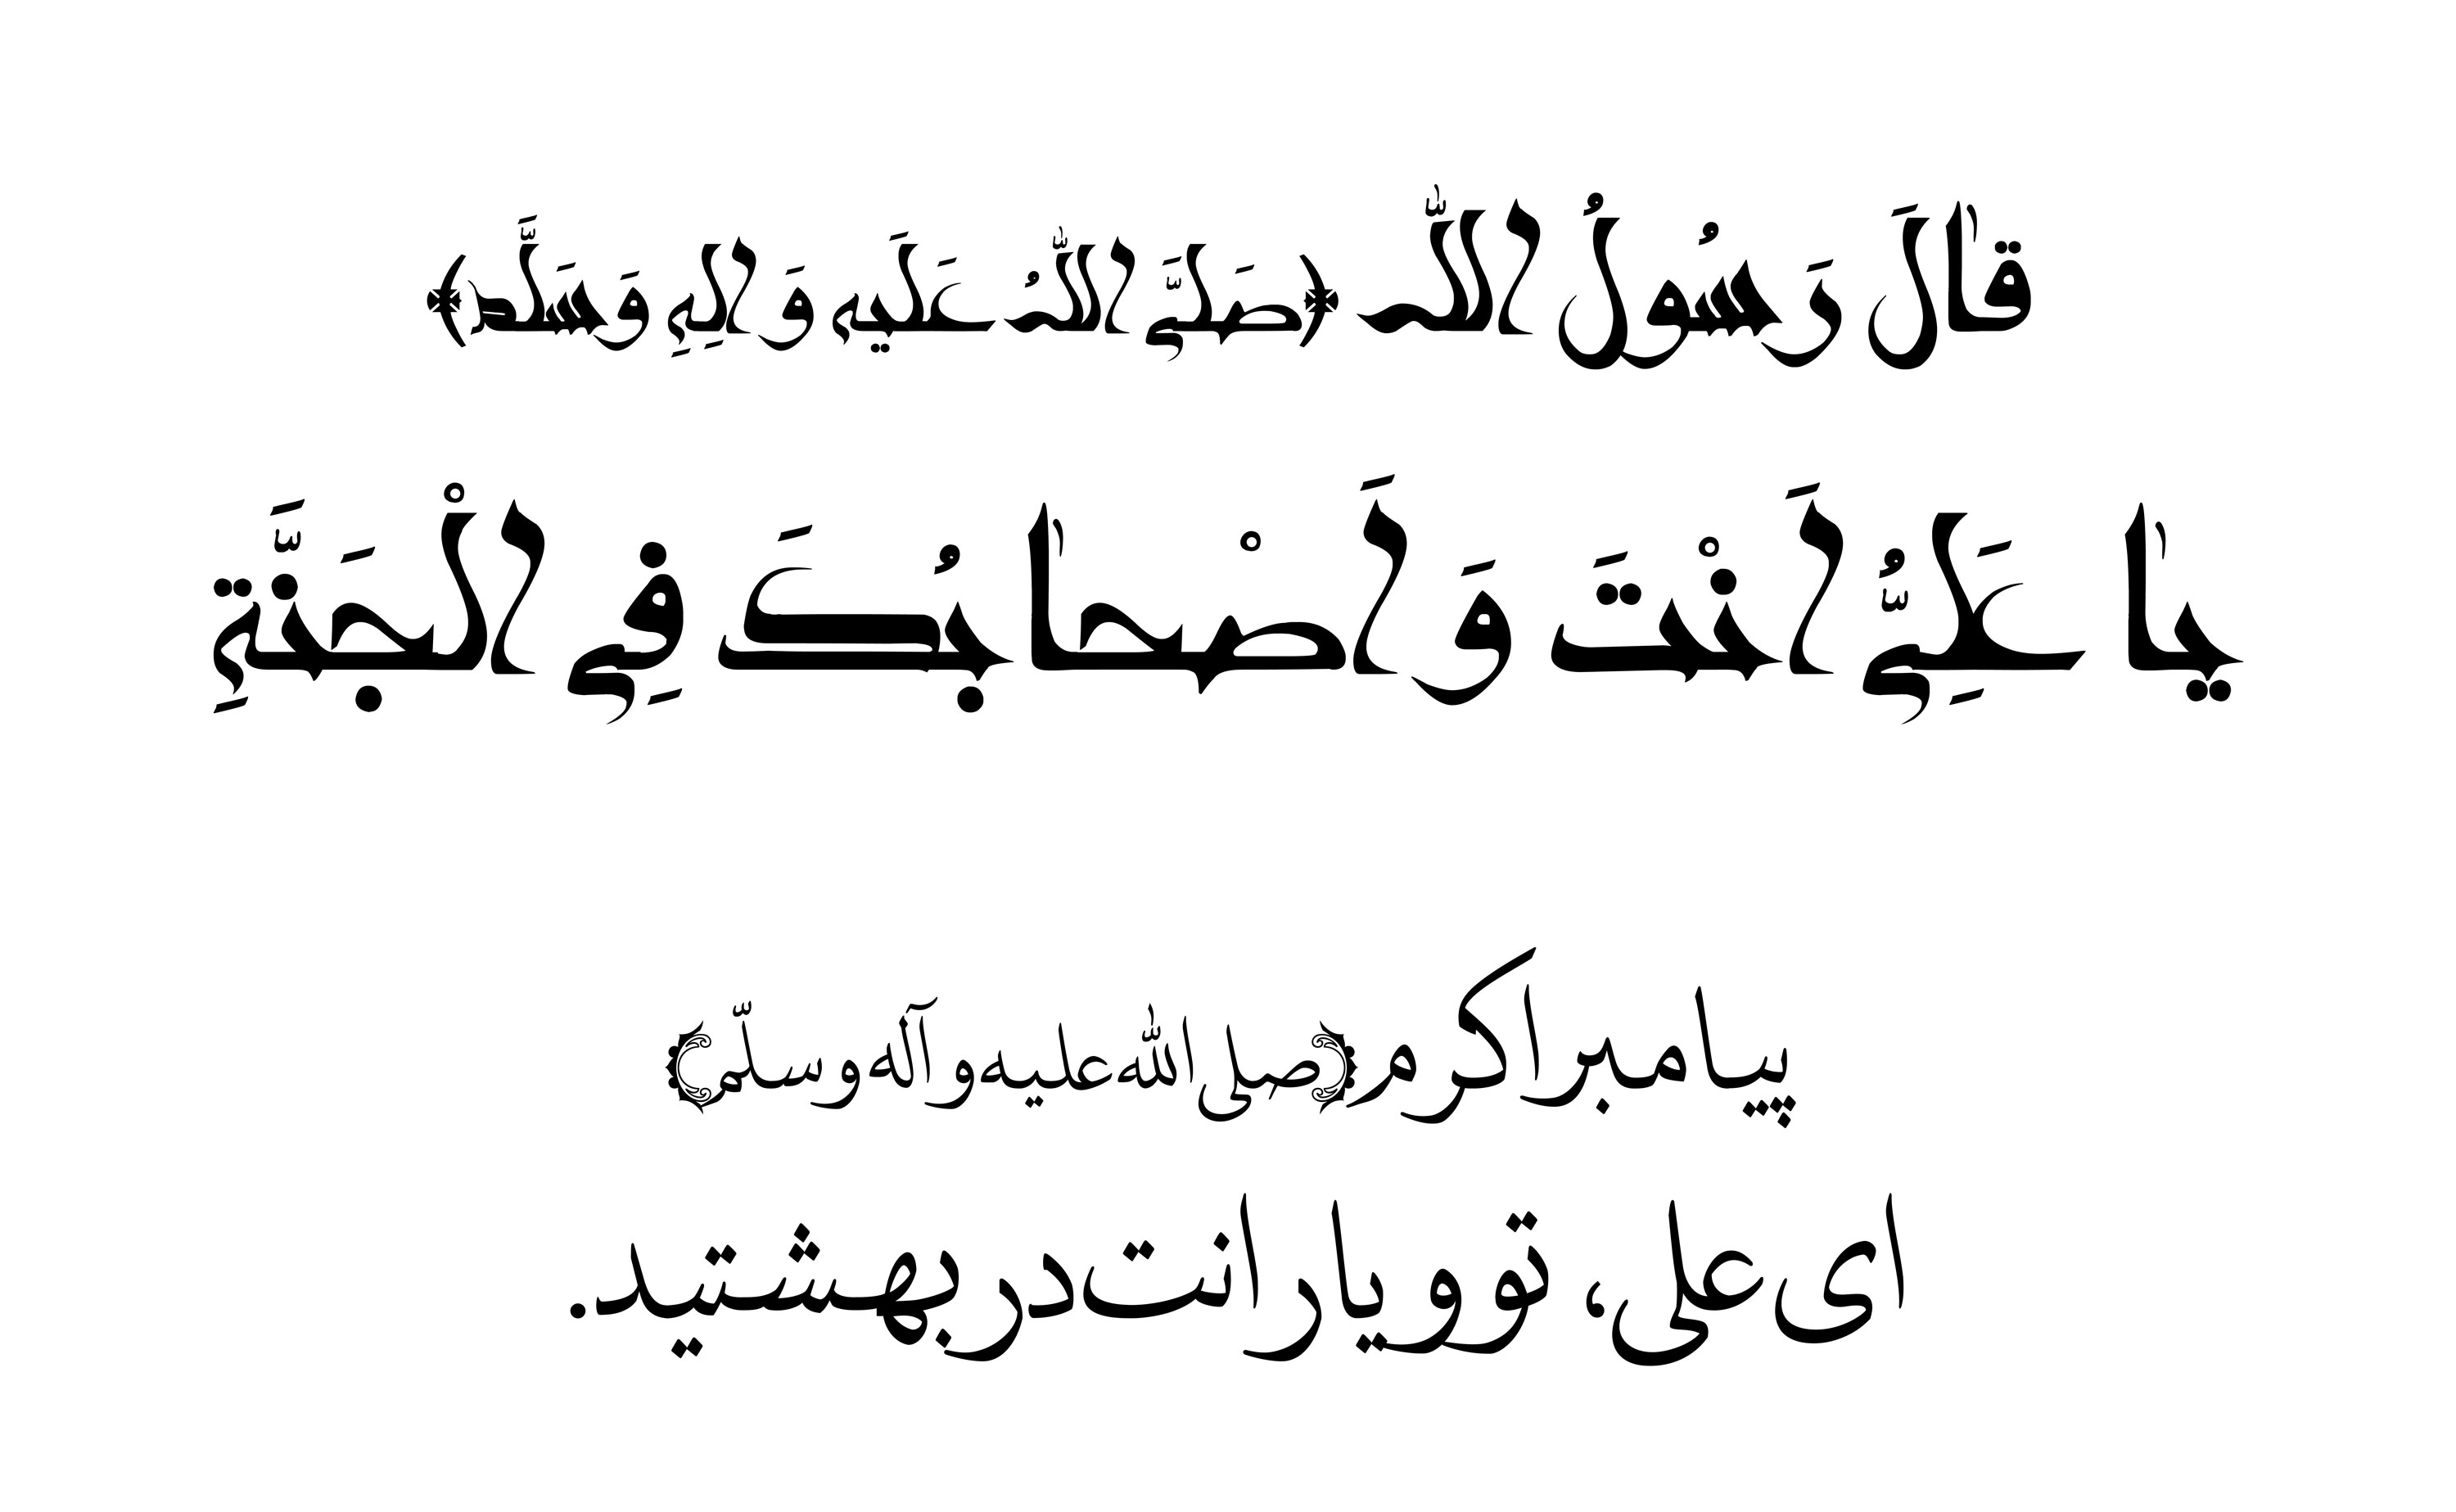 قالَ رَسُولُ اللّٰه (صَلَّی اللّٰهُ عَلَیهِ وَ الِهِ وَ سَلَّم)
یا عَلِیُّ اَنْتَ وَ اَصْحابُکَ فِی الْجَنَّةِ
پیامبر اکرم (صلی اللّٰه علیه و آله و سلّم)
ای علی، تو و یارانت در بهشتید.